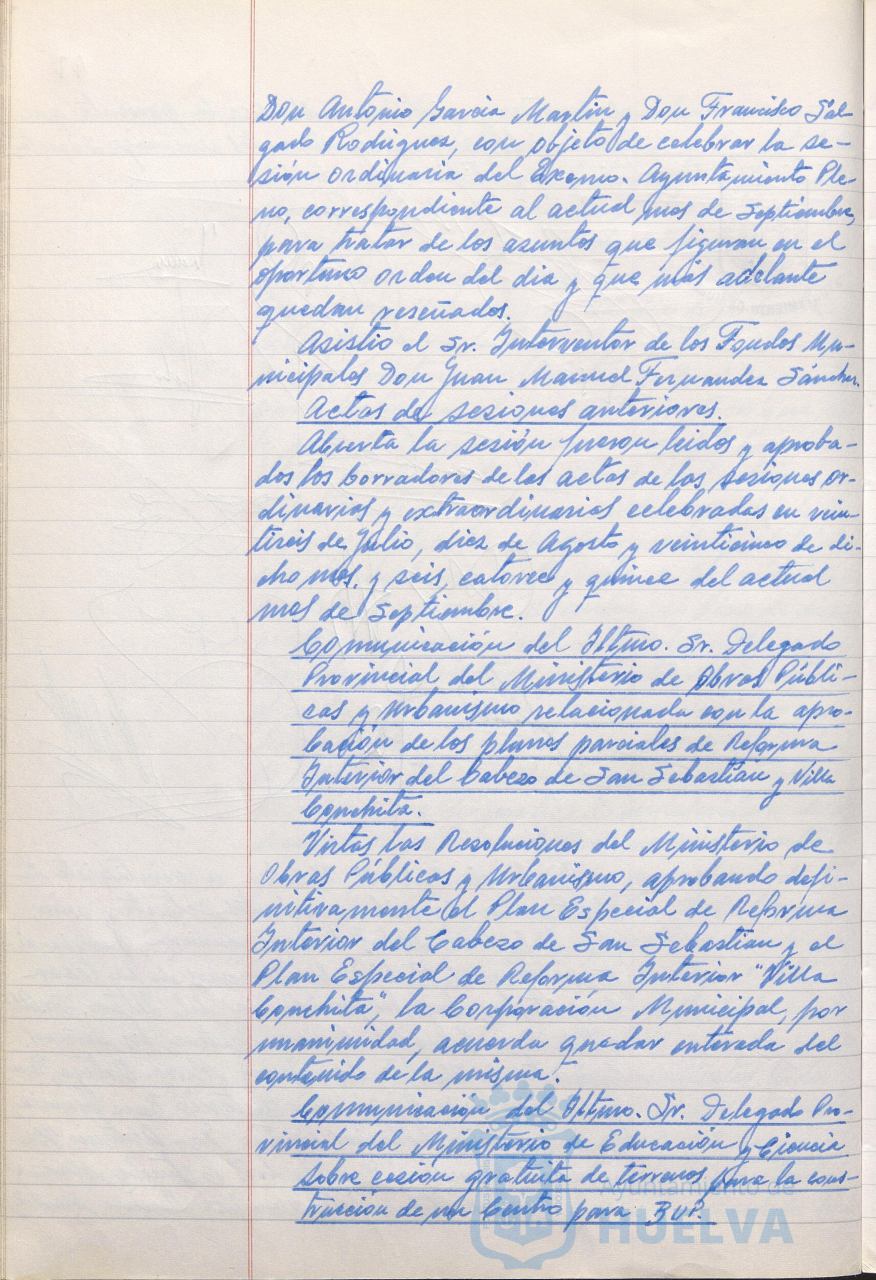 Don Antonio García Martín y Don Francisco Sal-
gado Rodríguez, con objeto de celebrar la se-
sión ordinaria del Excmo. Ayuntamiento Ple-
no, correspondiente al actual mes de Septiembre,
para tratar de los asuntos que figuran en el
oportuno orden del día y que más adelante
quedan reseñados.
Asistió el Sr. Interventor de los Fondos Mu-
nicipales Don Juan Manuel Fernandez Sánchez.
Actas de sesiones anteriores.
Abierta la sesión fueron leidos y aproba-
dos los borradores de las actas de las sesiones or-
dinarias y extraordinarias celebradas en vein-
tiseis de Julio, diez de Agosto y veinticinco de di-
cho mes, y seis, catorce y quince del actual
mes de Septiembre.
Comunicación del Iltmo. Sr. Delegado
Provincial del Ministerio de Obras Públi-
cas y Urbanismo relacionada con la apro-
bación de los planes parciales de Reforma
Interior del Cabezo de San Sebastián y Villa
Conchita.
Vistas las Resoluciones del Ministerio de
Obras Públicas y Urbanismo, aprobando defi-
nitivamente el Plan Especial de Reforma
Interior del Cabezo de San Sebastian y el
Plan Especial de Reforma Interior "Villa
Conchita", la Corporación Municipal, por
unanimidad, acuerda quedar enterada del
contenido de la misma.
Comunicación del Iltmo. Sr. Delegado Pro-
vincial del Ministerio de Educación y Ciencia
sobre cesión gratuita de terrenos para la cons-
trucción de un Centro para B.U.P.
Ayuntamiento de
HUELVA